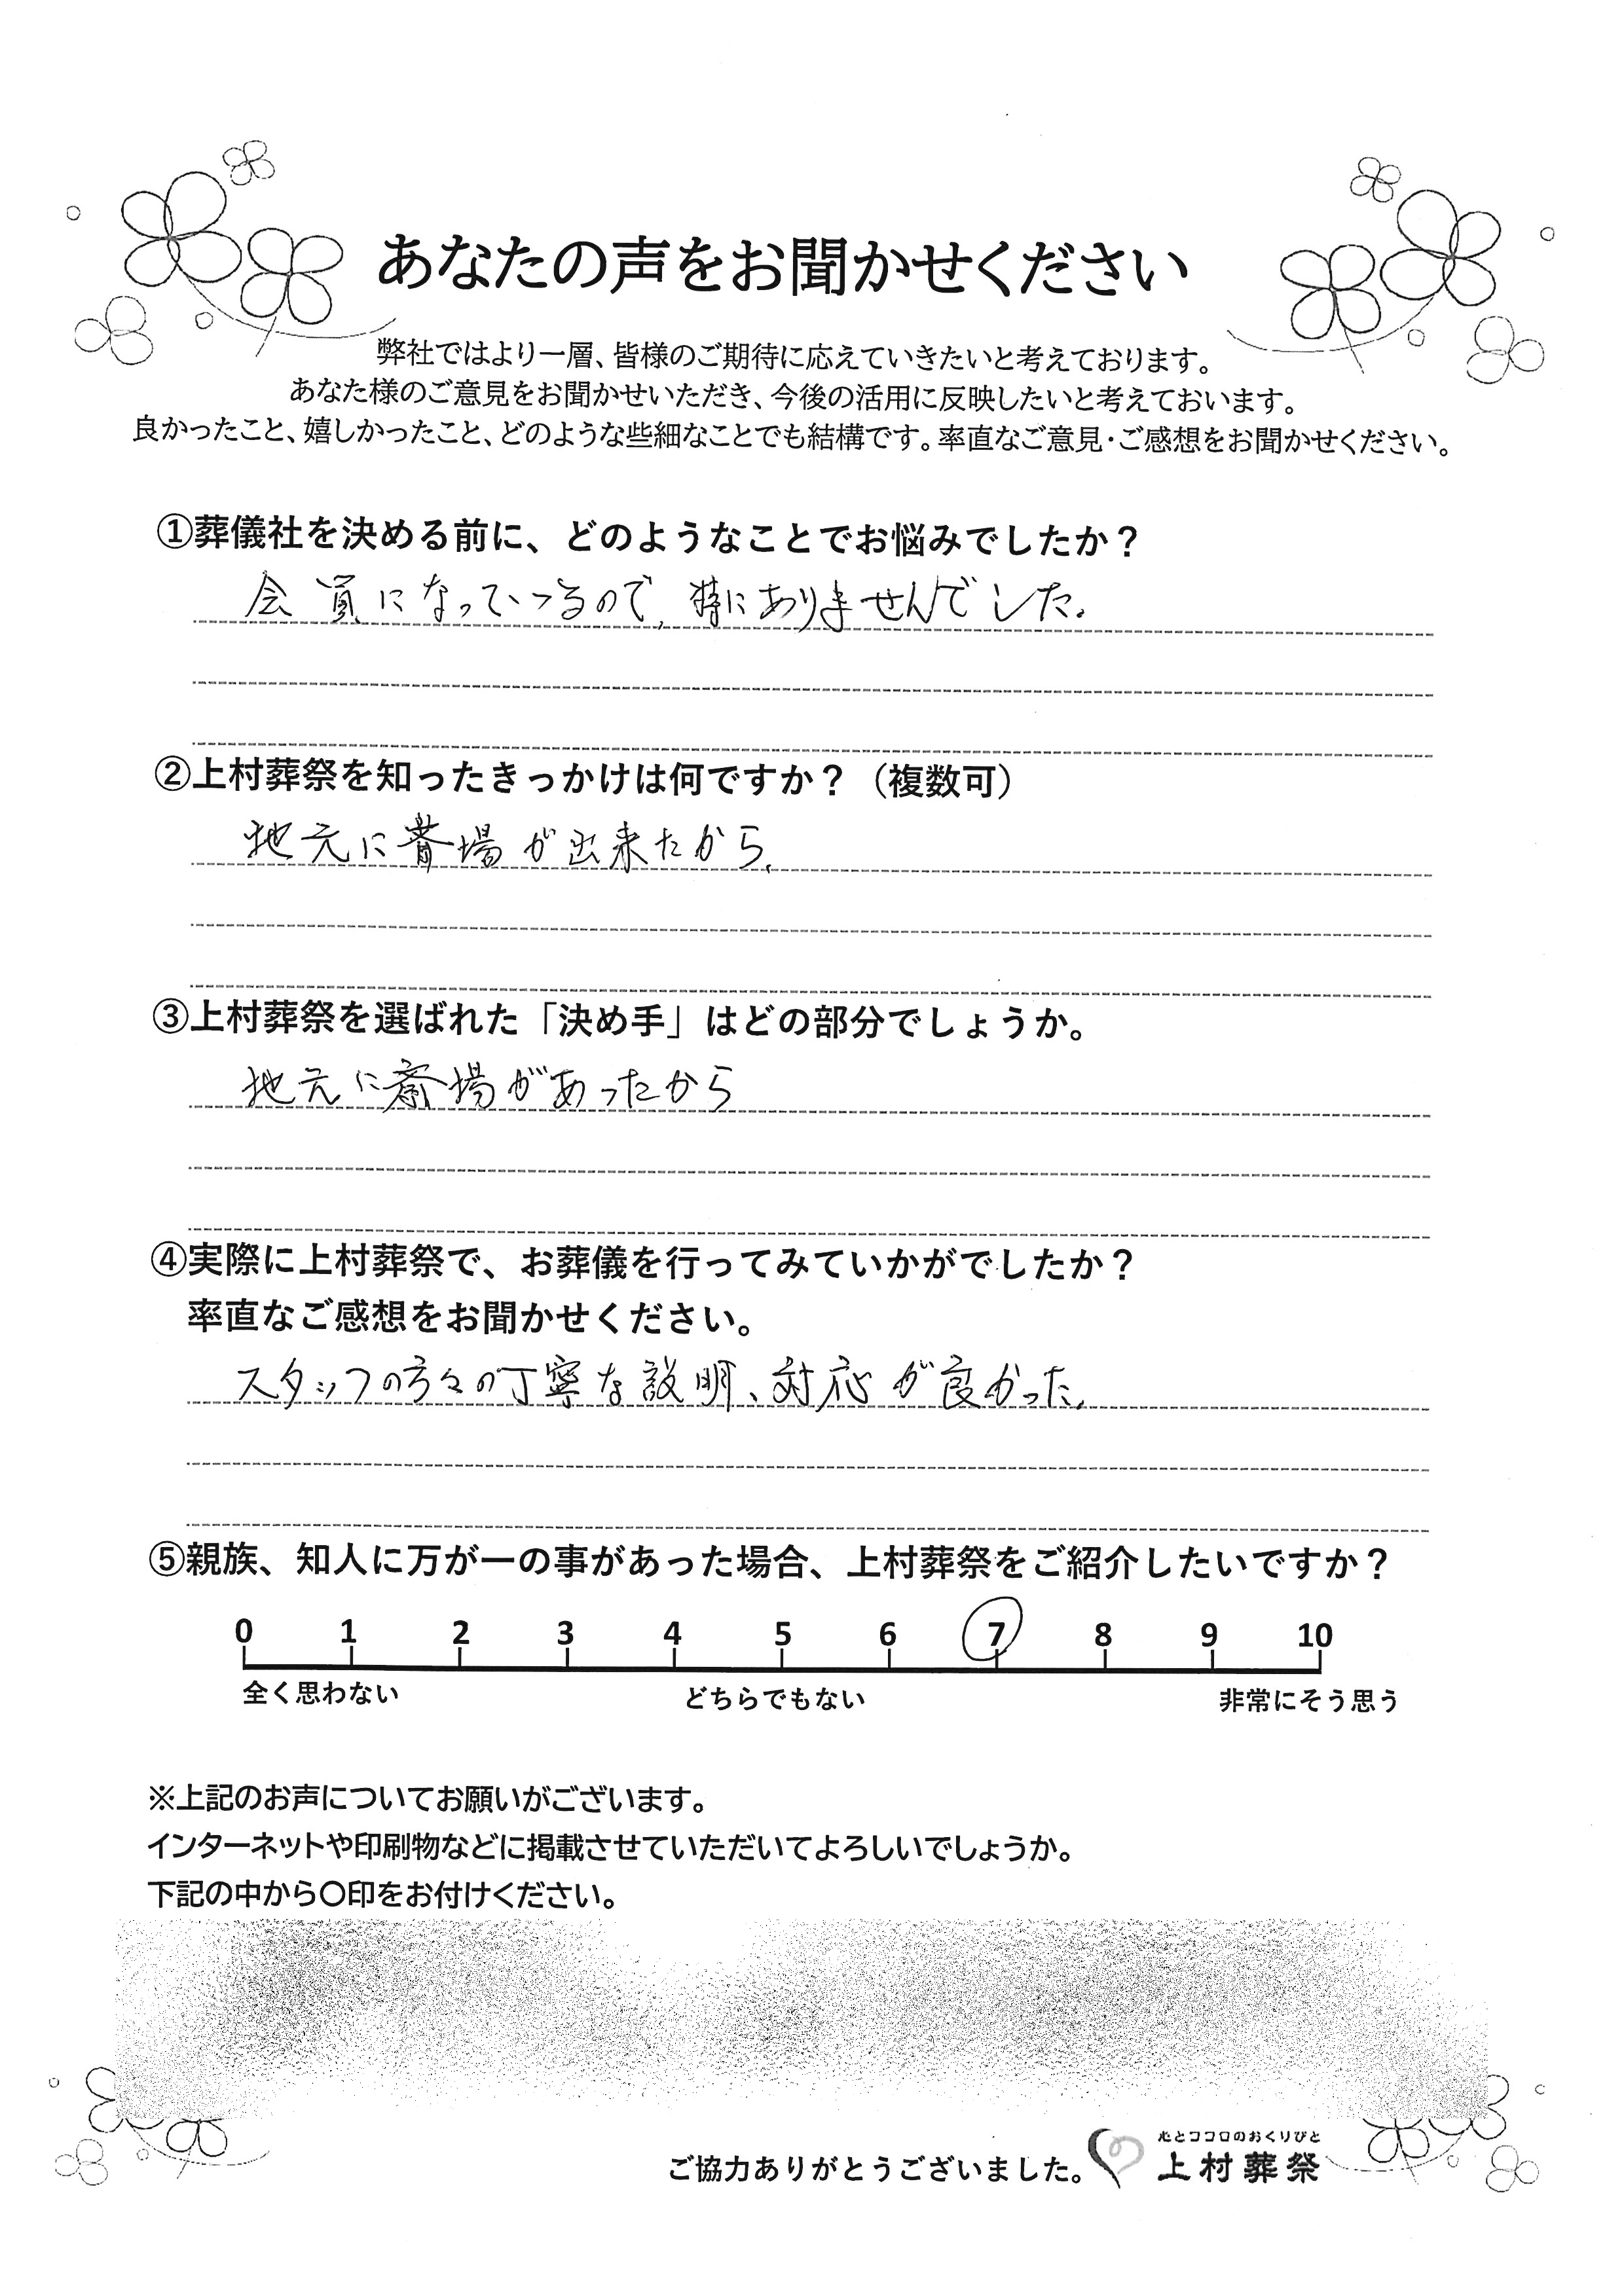 あなたの声をお聞かせください
弊社ではより一層、皆様のご期待に応えていきたいと考えております。
あなた様のご意見をお聞かせいただき、今後の活用に反映したいと考えておいます。
良かったこと、嬉しかったこと、どのような些細なことでも結構です。率直なご意見・ご感想をお聞かせください。
①葬儀社を決める前に、どのようなことでお悩みでしたか？
会員になっているので、特にありませんでした。
②上村葬祭を知ったきっかけは何ですか？（複数可）
地元に斎場が出来たから、
③上村葬祭を選ばれた「決め手」はどの部分でしょうか。
地元に斎場があったから
④実際に上村葬祭で、お葬儀を行ってみていかがでしたか？
率直なご感想をお聞かせください。
スタッフの方々の丁寧な説明、対応が良かった。
⑤親族、知人に万が一の事があった場合、上村葬祭をご紹介したいですか？
0 1 2 3 4 5 6 7 8 9 10
全く思わない どちらでもない 非常にそう思う
※上記のお声についてお願いがございます。
インターネットや印刷物などに掲載させていただいてよろしいでしょうか。
下記の中から〇印をお付けください。
心とココロのおくりびと
ご協力ありがとうございました。 上村葬祭